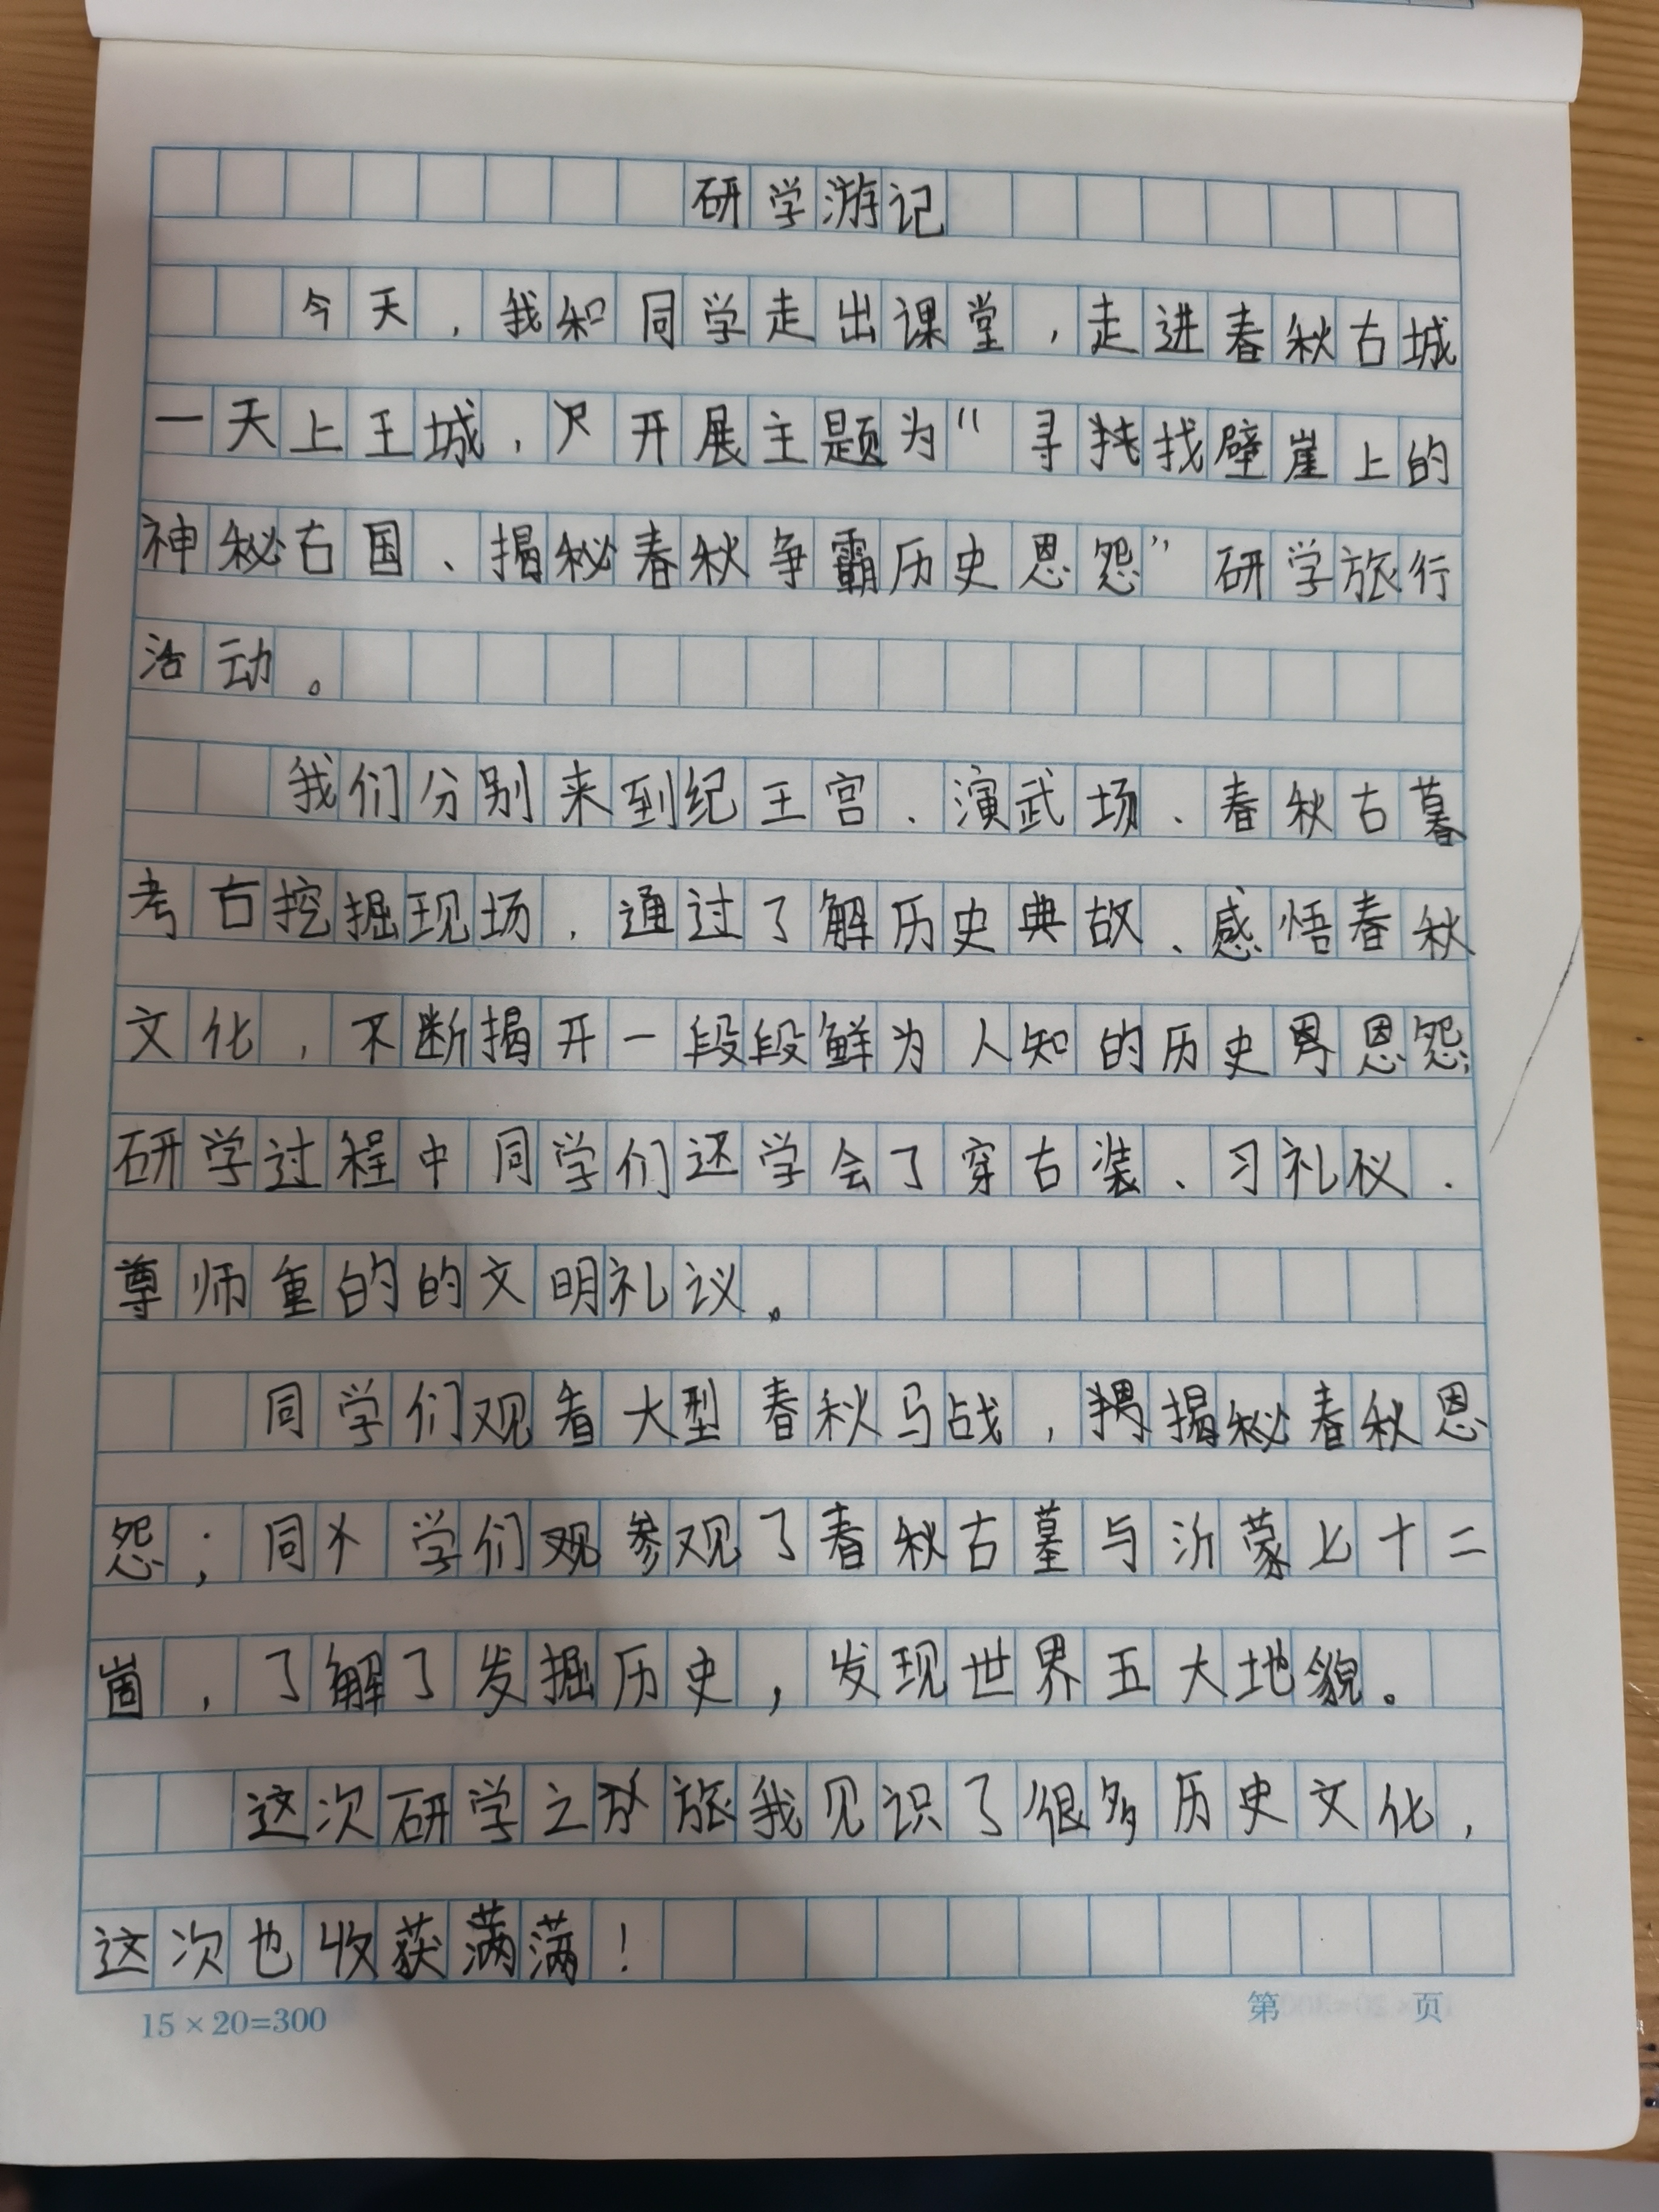 研学游记
今天，我和同学走出课堂，走进春秋古城
一天上王城，开展主题为“寻找壁崖上的
神秘古国、揭秘春秋争霸历史恩怨”研学旅行
活动。
我们分别来到纪王宫、演武场、春秋古墓
考古挖掘现场，通过了解历史典故、感悟春秋
文化，不断揭开一段段鲜为人知的历史恩怨；
研学过程中同学们还学会了穿古装、习礼仪、
尊师重的的文明礼议。
同学们观看大型春秋马战，揭秘春秋恩
怨；同学们参观了春秋古墓与沂蒙七十二
崮，了解了发掘历史，发现世界五大地貌。
这次研学之旅我见识了很多历史文化，
这次也收获满满！
15×20=300
第 页